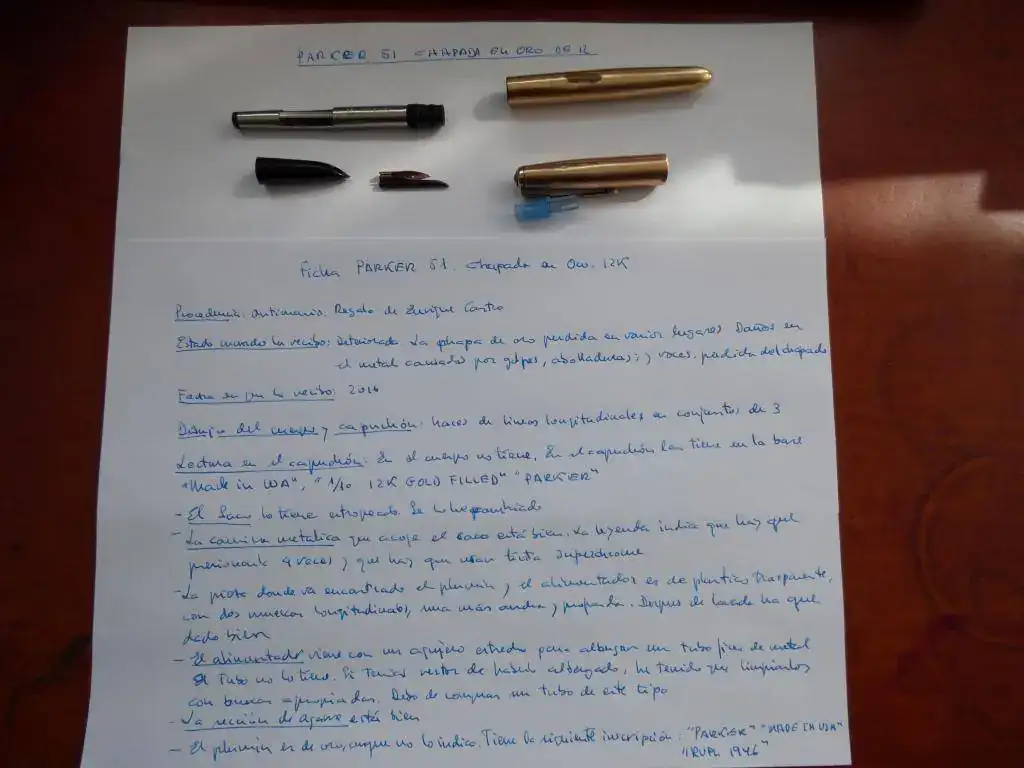 PARKER 51 CHAPADA EN ORO DE 12
Ficha PARKER 51. Chapada en Oro. 12K
Procedencia: anticuario. Regalo de Enrique Castro
Estado cuando la recibo: Deteriorada La chapa de oro perdida en varios lugares Daños en
el metal causado por golpes, abolladuras; y roces, perdida del chapado
Fecha en que la recibo: 2016
Dibujo del cuerpo y capuchón: haces de lineas longitudinales en conjuntos de 3
Lectura en el capuchón: En el cuerpo no tiene. En el capuchón las tiene en la base
"Made in USA", "1/10 12K GOLD FILLED" "PARKER"
- El Saco lo tiene estropeado. Se lo he cambiado
- La camisa metalica que acoje el saco está bien. La leyenda indica que hay que
presionarla 4 veces y que hay que usar tinta Superchrome
- La pieza donde va encastrado el plumín y el alimentador es de plastico trasparente,
con dos muescas longitudinales, una más ancha y profunda. Despues de lavada ha que
dado bien
- El alimentador viene con un agujero estrecho para albergar un tubo fino de metal
El Tubo no lo tiene. Si tenia restos de haberlo albergado, he tenido que limpiarlos
con brocas apropiadas. Debo de comprar un tubo de este tipo
- La sección de agarre está bien
- El plumín es de oro, aunque no lo indica. Tiene la siguiente inscripción: "PARKER" "MADE IN USA"
1946"